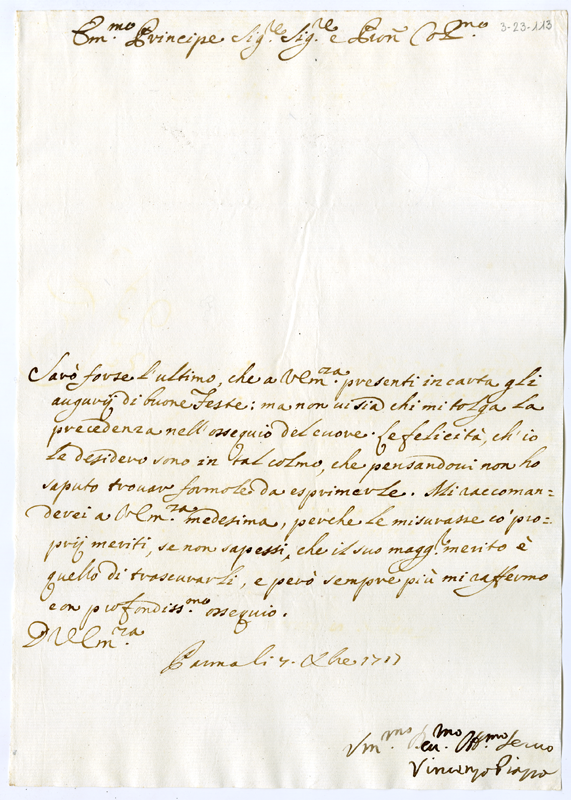 Em.mo Principe Sig.re Sig.re e Pron Co.mo
3-23-113
Sarò forse l'ultimo, che a V Em.za presenti in carta gli
augurij di buone Feste: ma non ui sia chi mi tolga la
precedenza nell'ossequio del cuore. Le felicità, ch'io
le desidero sono in tal colmo, che pensandoui non ho
saputo trouar formole da esprimerle. Mi raccoman=
derei a V Em.za medesima, perche le misurasse co' pro=
prij meriti, se non sapessi, che il suo magg.re merito è
quello di trascurarli, e però sempre più mi raffermo
con profondiss.mo ossequio.
D V Em.za
Parma li 7. Xbre 1717
Vm.mo Obb.mo seruo
Vincenzo Piazza